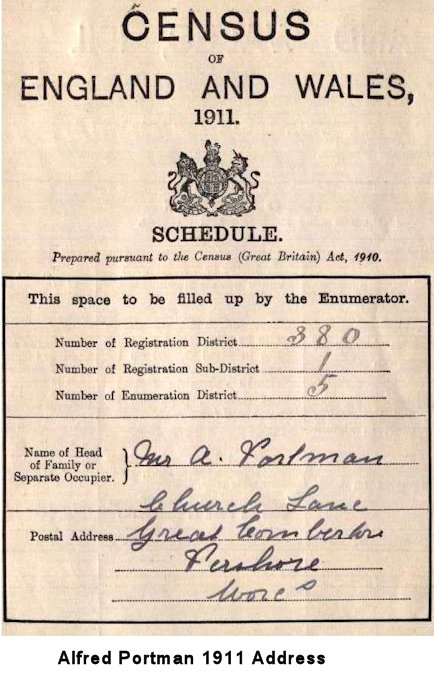 CENSUS
OF
ENGLAND AND WALES,
1911.
SCHEDULE.
Prepared pursuant to the Census (Great Britain) Act, 1910.
This space to be filled up by the Enumerator.
Number of Registration District 380
Number of Registration Sub-District 1
Number of Enumeration District 5
Name of Head
of Family or
Separate Occupier. } Mr A. Portman
Church Lane
Postal Address Great Comberton
Pershore
Worcs
Alfred Portman 1911 Address